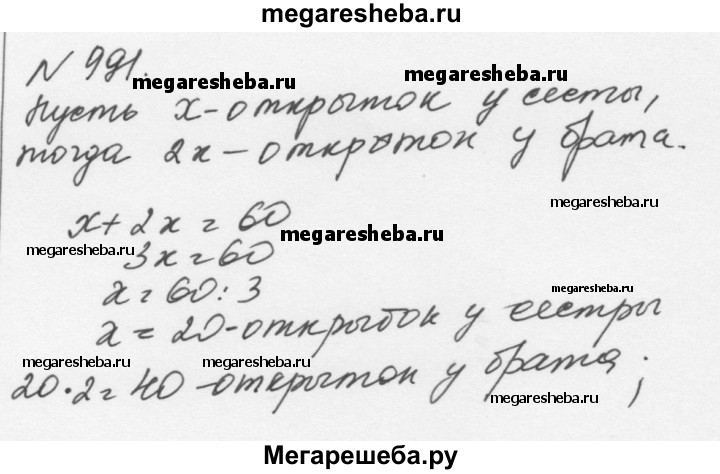 megaresheba.ru
N 991.
megaresheba.ru
megaresheba.ru
Пусть x - открыток у сесты,
тогда 2x - открыток у брата.
megaresheba.ru
x + 2x = 60
megaresheba.ru
megaresheba.ru
3x = 60
megaresheba.ru
x = 60 : 3
x = 20 - открыток у сестры
megaresheba.ru
megaresheba.ru
20 · 2 = 40 - открыток у брата;
megaresheba.ru
Мегарешеба.ру